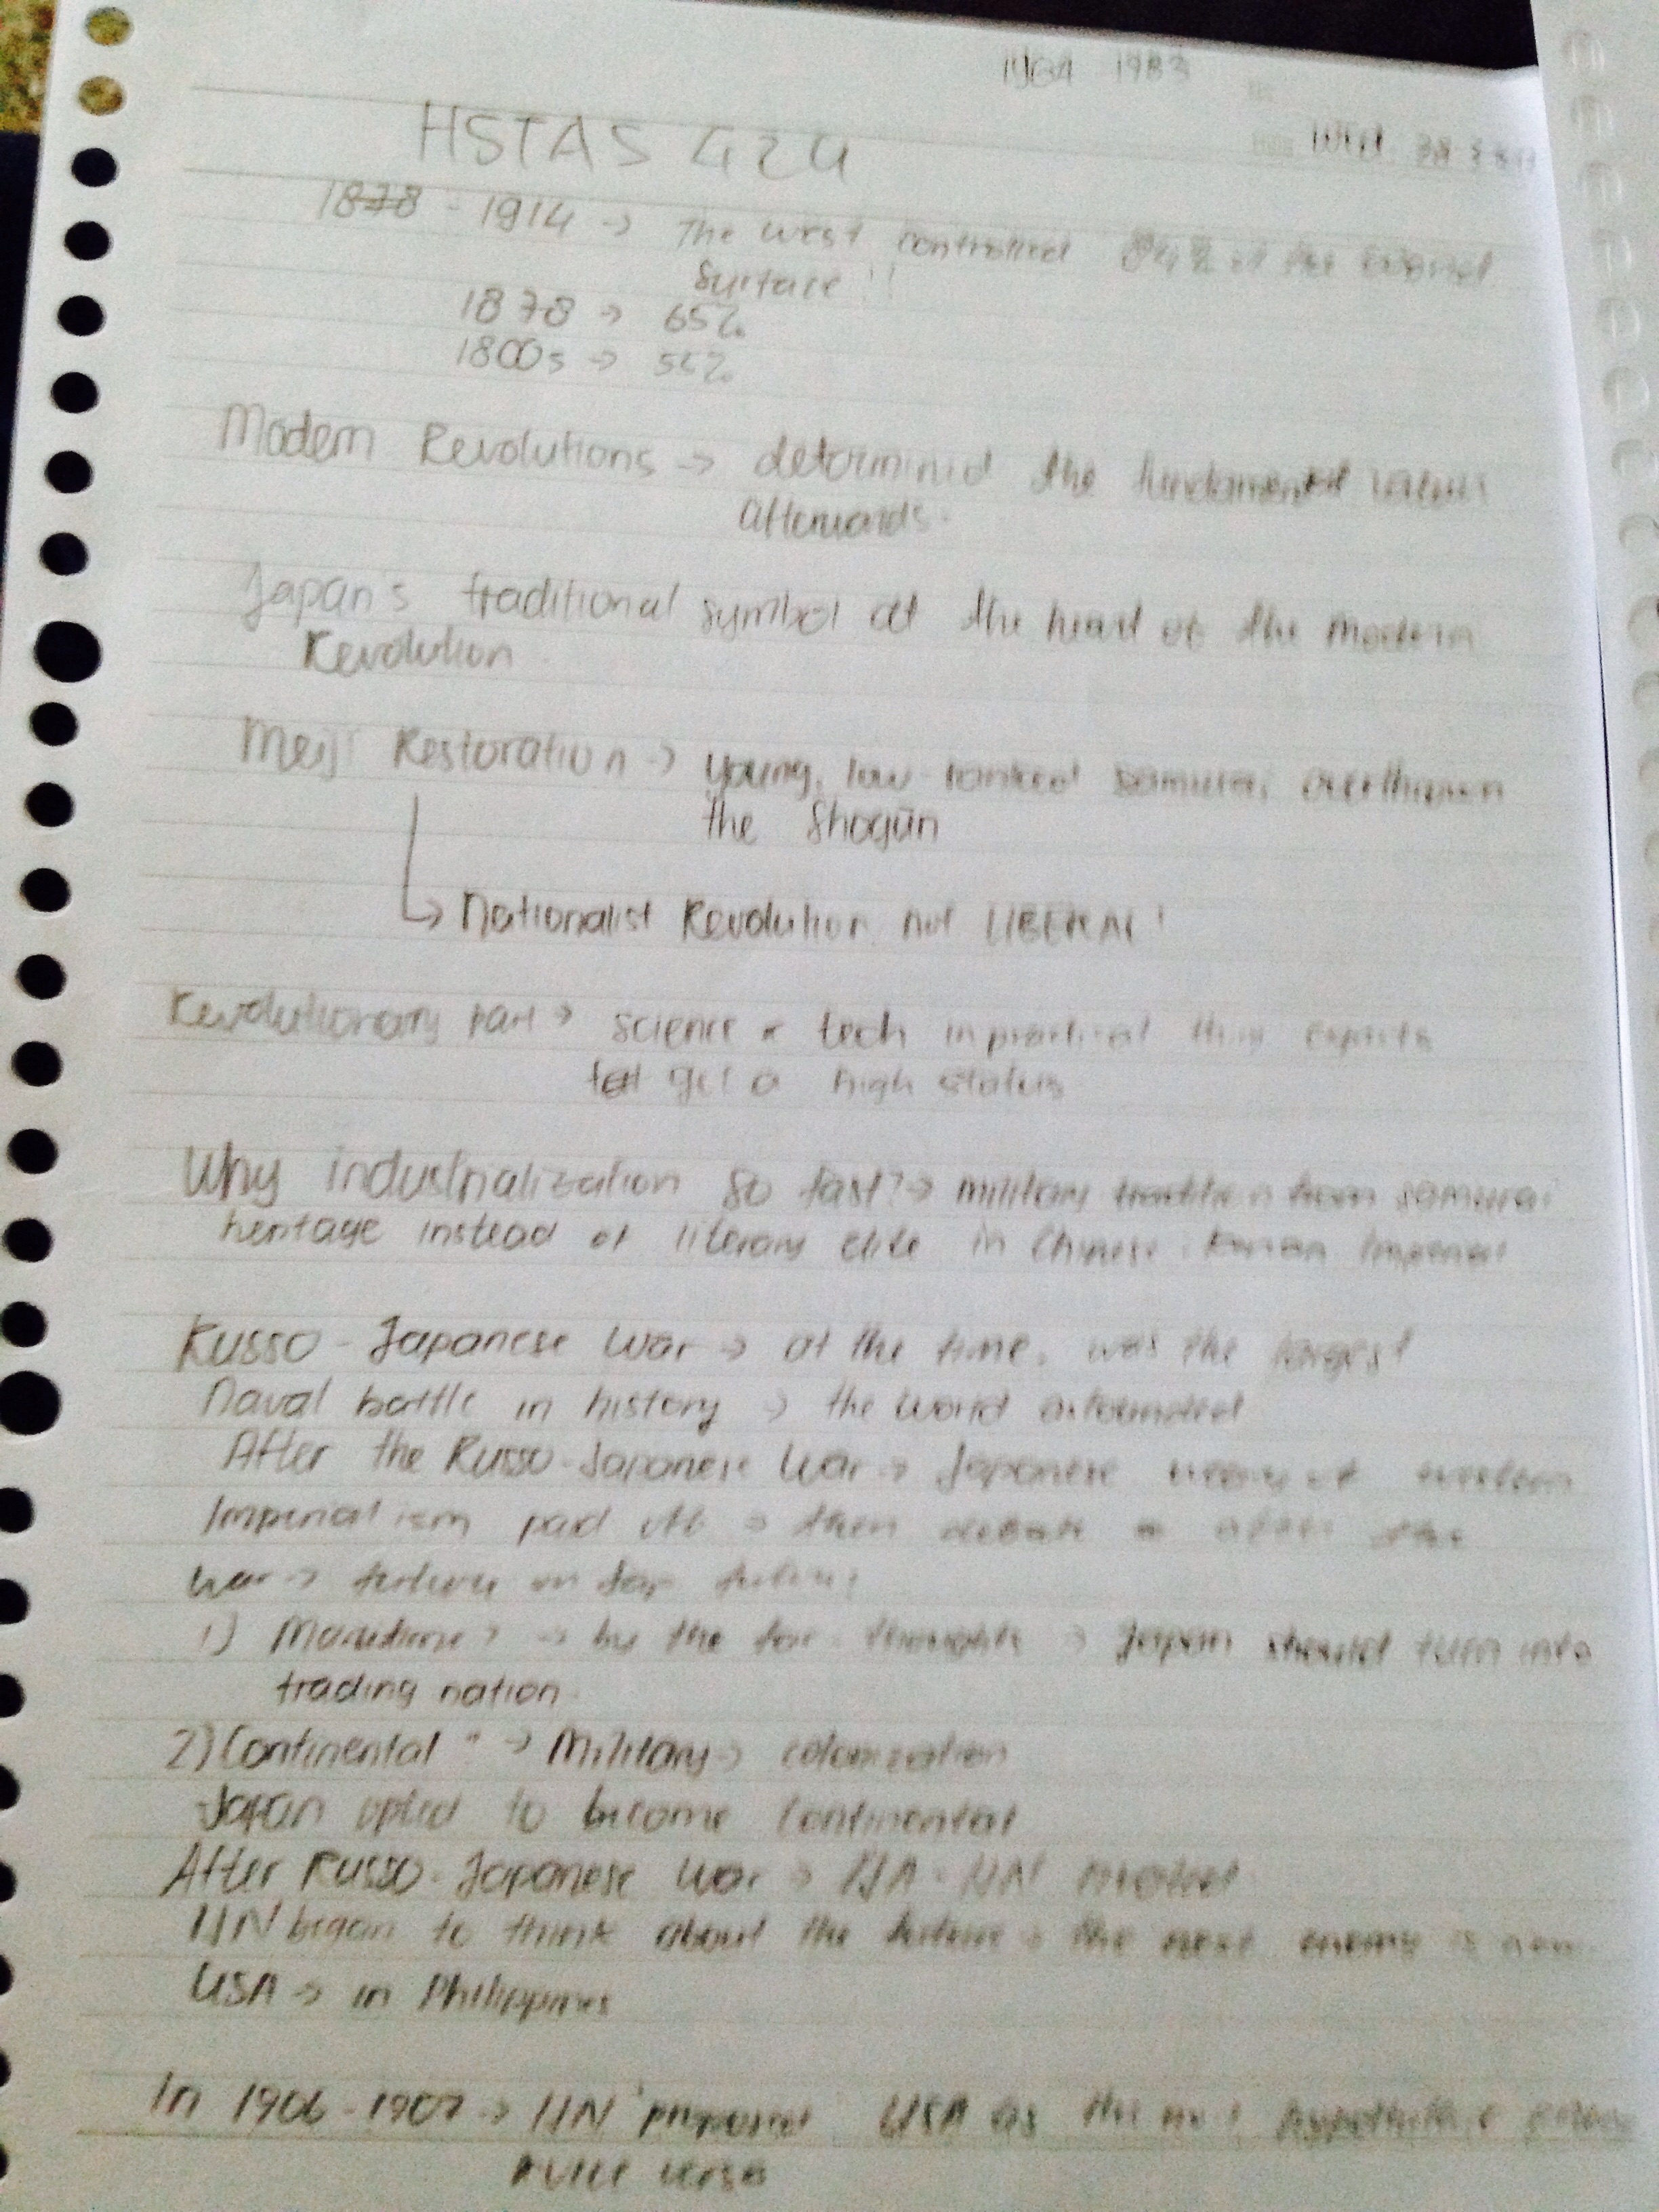 1983
HSTAS 424
1878 - 1914 → The west controlled 84% of the
surface!!
1878 → 65%
1800s →
Modern Revolutions → determined the fundamental values
afterwards.
Japan's traditional symbol at the heart of the modern
Revolution.
Meiji Restoration → young, low-ranked samurai overthrown
the Shogūn
↳ Nationalist Revolution not LIBERAL!
Revolutionary part → science & tech experts
get a high status
Why industrialization so fast? → military tradition from samurai
heritage instead of literary elite in Chinese, Korean Imperial
Russo-Japanese War → at the time, was the largest
Naval battle in history → the world astounded
After the Russo-Japanese War → Japanese western
Imperialism paid off → then debate after the
war →
1) → by the Japan should turn into
trading nation.
2) Continental " → Military → colonization
Japan opted to become continental
After Russo-Japanese War → IJA - IJN
IJN began to think about the future → the next enemy is
USA → in Philippines
In 1906-1907 → IJN proposed USA as the next
vice versa